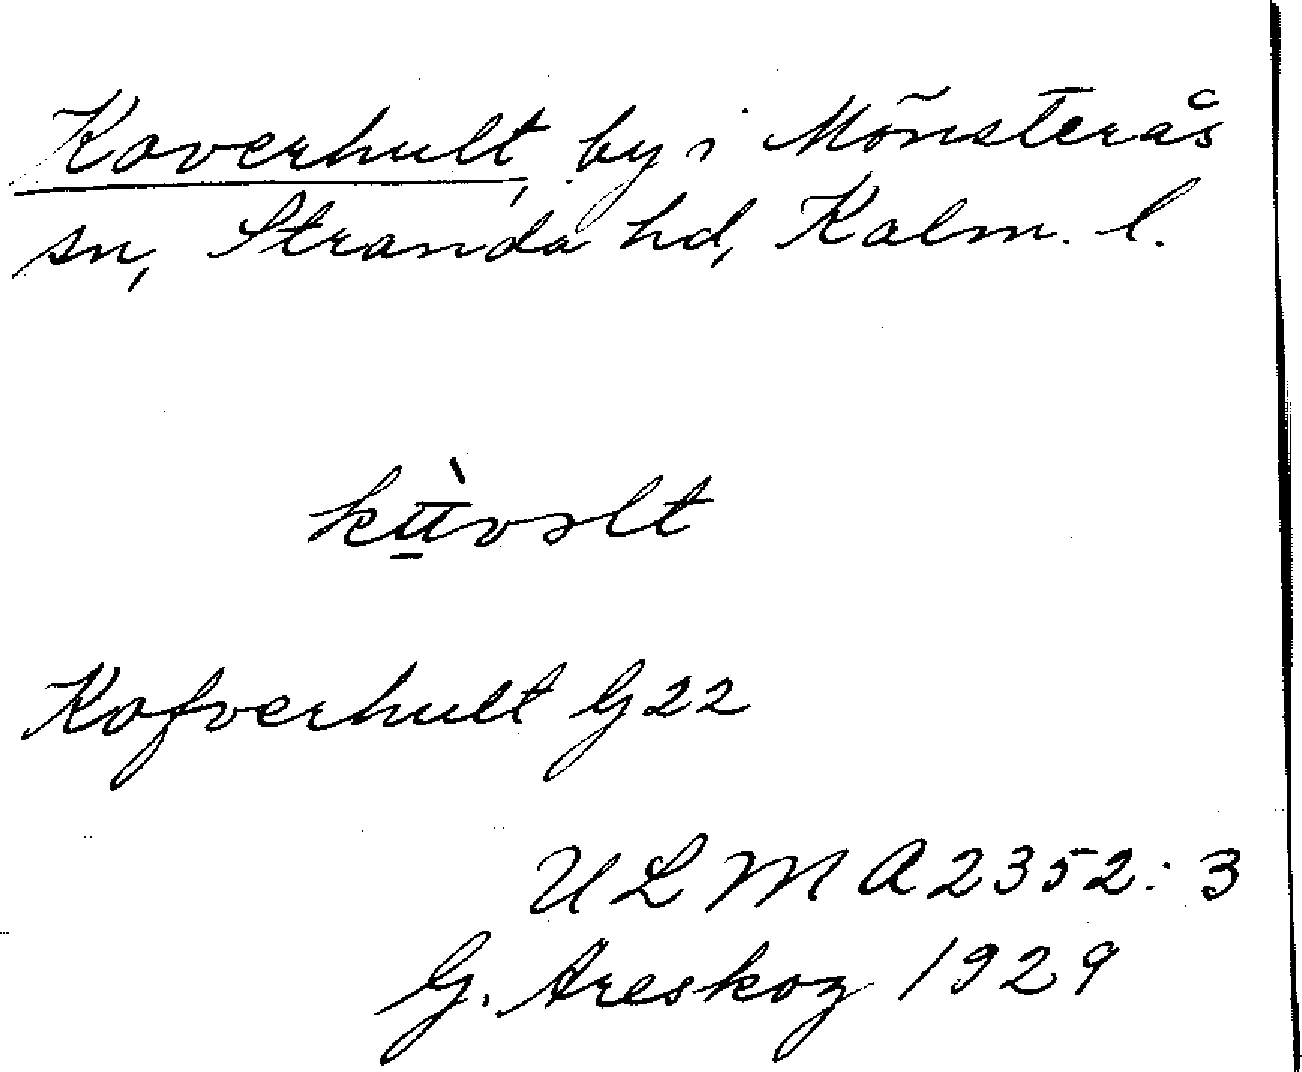 Koverhult, by i Mönsterås
sn, Stranda hd, Kalm. l.
Kofverhult G 22
ULMA 2352:3
G. Areskog 1929